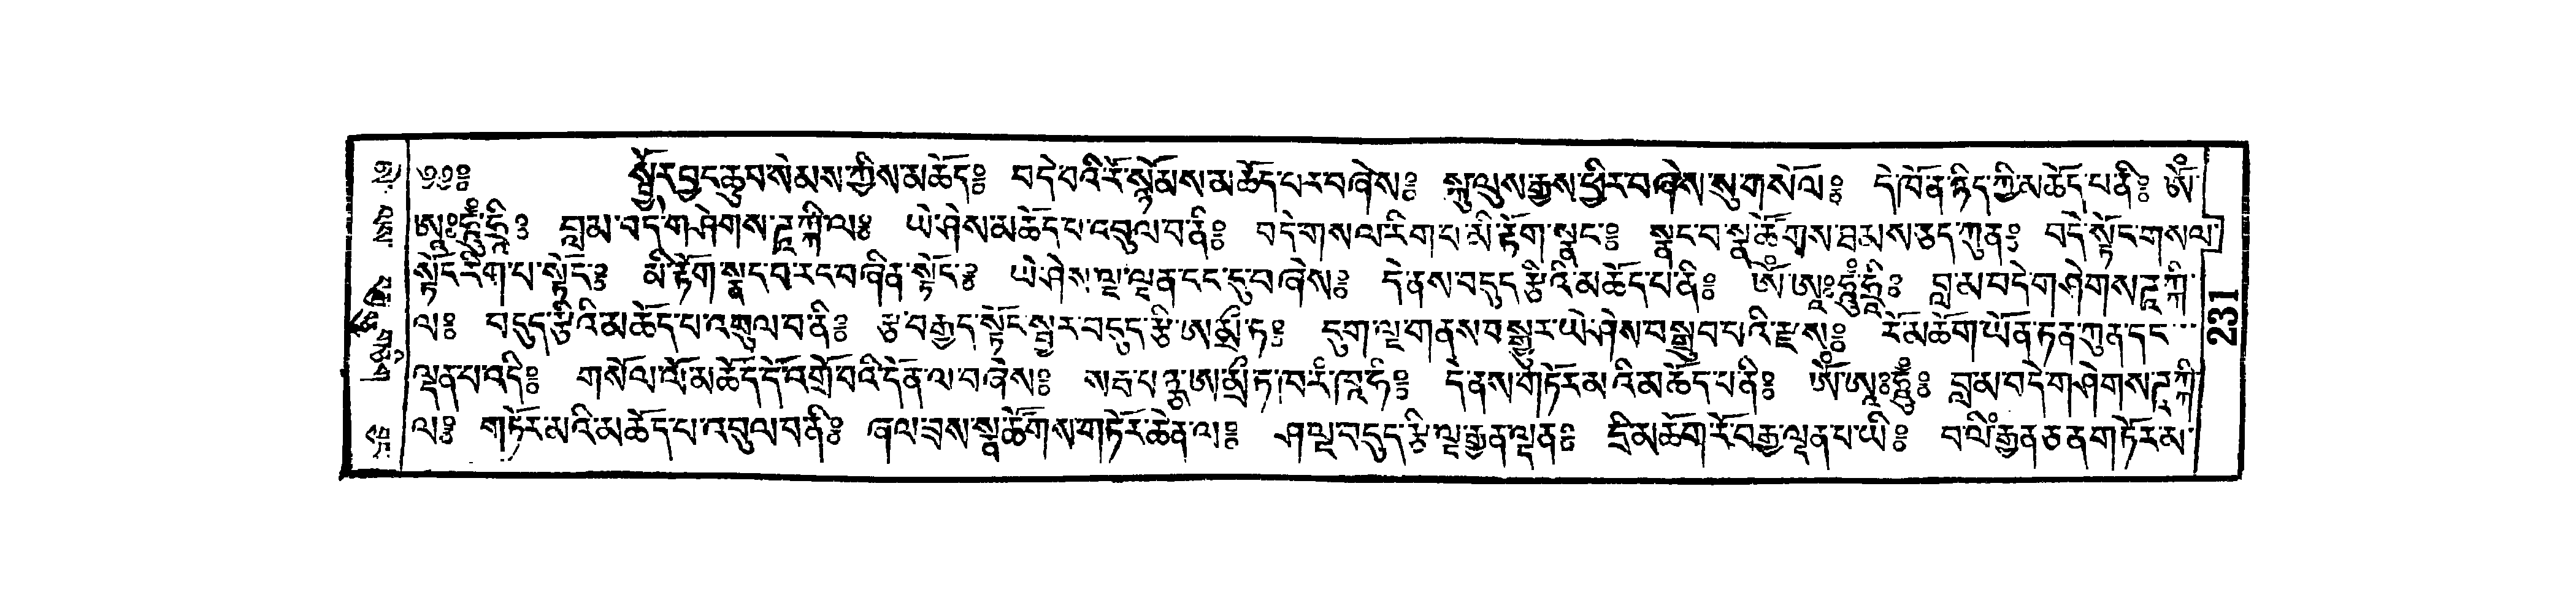 ༄༅༔ སྦྱོར་བྱང་ཆུབ་སེམས་ཀྱིས་མཆོད༔ བདེ་བའི་རོ་སྙོམས་མཆོད་པར་བཞེས༔ སྐུ་ལུས་རྒྱས་ཕྱིར་བཞེས་སུ་གསོལ༔ དེ་ཁོན་ཉིད་ཀྱི་མཆོད་པ་ནི༔ ཨོཾ་
ཨཱཿཧཱུྃ་ཧྲཱི༔ བླ་མ་བདེ་གཤེགས་ཌཱཀྐི་ལ༔ ཡེ་ཤེས་མཆོད་པ་འབུལ་བ་ནི༔ བདེ་གསལ་རིག་པ་མི་རྟོག་སྣང༔ སྣང་བ་སྣ་ཚོགས་ཐམས་ཅད་ཀུན༔ བདེ་སྟོང་གསལ་
སྟོང་རིག་པ་སྟོང༔ མི་རྟོག་སྣང་བ་རང་བཞིན་སྟོང༔ ཡེ་ཤེས་ལྔ་ལྡན་ངང་དུ་བཞེས༔ དེ་ནས་བདུད་རྩིའི་མཆོད་པ་ནི༔ ཨོཾ་ཨཱཿཧཱུྃ་ཧྲཱི༔ བླ་མ་བདེ་གཤེགས་ཌཱཀྐི་
ལ༔ བདུད་རྩིའི་མཆོད་པ་འབུལ་བ་ནི༔ རྩ་བརྒྱད་སྟོང་སྦྱར་བདུད་རྩི་ཨ་མྲྀ་ཏ༔ དུག་ལྔ་གནས་བསྒྱུར་ཡེ་ཤེས་བསྒྲུབ་པའི་རྫས༔ རོ་མཆོག་ཡོན་ཏན་ཀུན་དང་
ལྡན་པ་འདི༔ གསོལ་ལོ་མཆོད་དོ་འགྲོ་བའི་དོན་ལ་བཞེས༔ སརྦ་པཉྩ་ཨ་མྲྀ་ཏ་ཁ་རཾ་ཁཱ་ཧི༔ དེ་ནས་གཏོར་མའི་མཆོད་པ་ནི༔ ཨོཾ་ཨཱཿཧཱུྃ༔ བླ་མ་བདེ་གཤེགས་ཌཱཀྐི་
ལ༔ གཏོར་མའི་མཆོད་པ་འབུལ་བ་ནི༔ ཞལ་ཟས་སྣ་ཚོགས་གཏོར་ཆེན་ལ༔ ཤ་ལྔ་བདུད་རྩི་ལྔ་རྒྱན་ལྡན༔ དྲི་མཆོག་རོ་བརྒྱ་ལྡན་པ་ཡི༔ བ་ལིཾ་རྒྱན་ཅན་གཏོར་མ་